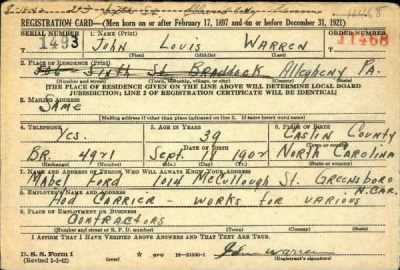 REGISTRATION CARD—(Men born on or after February 17, 1897 and on or before December 31, 1921)
SERIAL NUMBER 1. NAME (Print) ORDER NUMBER
1493 JOHN LOUIS WARREN 11468
(First) (Middle) (Last)
2. PLACE OF RESIDENCE (Print)
SIXTH ST. BRADDOCK ALLEGHENY PA.
(Number and street) (Town, township, village, or city) (County) (State)
[THE PLACE OF RESIDENCE GIVEN ON THE LINE ABOVE WILL DETERMINE LOCAL BOARD
JURISDICTION; LINE 2 OF REGISTRATION CERTIFICATE WILL BE IDENTICAL]
3. MAILING ADDRESS
SAME
[Mailing address if other than place indicated on line 2. If same insert word same]
4. TELEPHONE 5. AGE IN YEARS 6. PLACE OF BIRTH
YES. 39 COUNTY
DATE OF BIRTH
BR. 4971 SEPT. 1902 NORTH CAROLINA
(Exchange) (Number) (Mo.) (Day) (Yr.) (State or country)
7. NAME AND ADDRESS OF PERSON WHO WILL ALWAYS KNOW YOUR ADDRESS
MABEL LORD 1014 McCULLOUGH ST. GREENSBORO
N. CAR.
8. EMPLOYER'S NAME AND ADDRESS
HOD CARRIER - WORKS FOR VARIOUS
9. PLACE OF EMPLOYMENT OR BUSINESS
CONTRACTORS
(Number and street or R. F. D. number) (Town) (County) (State)
I AFFIRM THAT I HAVE VERIFIED ABOVE ANSWERS AND THAT THEY ARE TRUE.
D. S. S. Form 1 GPO 16-21630-1 John Warren
(Revised 1-3-42)